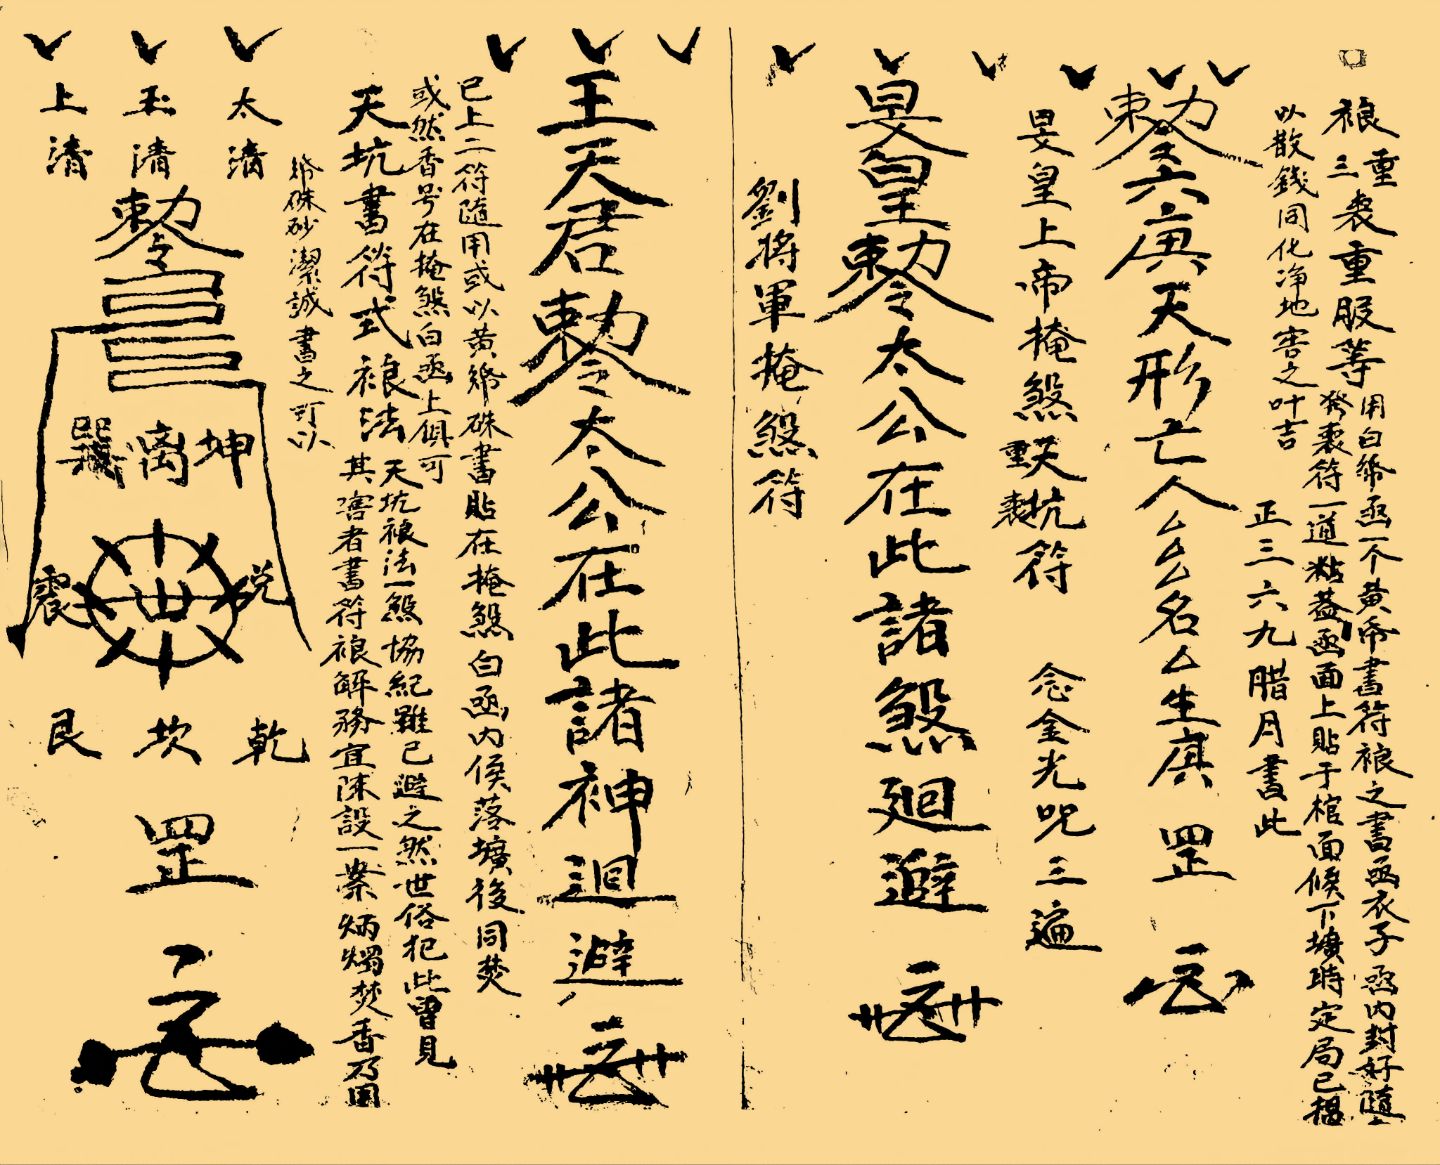 禳重
三喪重服等
用白紙函一个黃帋書符禳之書函衣子函内封好隨
發喪符一道粘蓋函面上貼于棺面候下壙時定局已揭
以散錢同化净地害之叶吉
正三六九腊月書此
勅令六庚天形亡人厶厶名厶生庚罡
旻皇上帝掩煞天坑符
重喪
念金光呪三遍
旻皇勅令太公在此諸煞廻避
劉將軍掩煞符
王天君勅令太公在此諸神迴避
已上二符隨用或以黃紙硃書貼在掩煞白函内候落壙後同焚
或然香号在掩煞白函上俱可
天坑書符式禳法
天坑禳法一煞協紀雖已避之然世俗犯此曾見
其害者書符禳解務宜陳設一案炳燭焚香乃用
紙硃砂潔誠書之可以
太清
玉清
上清
勅令
坤
離
巽
兌
震
乾
坎
艮
罡